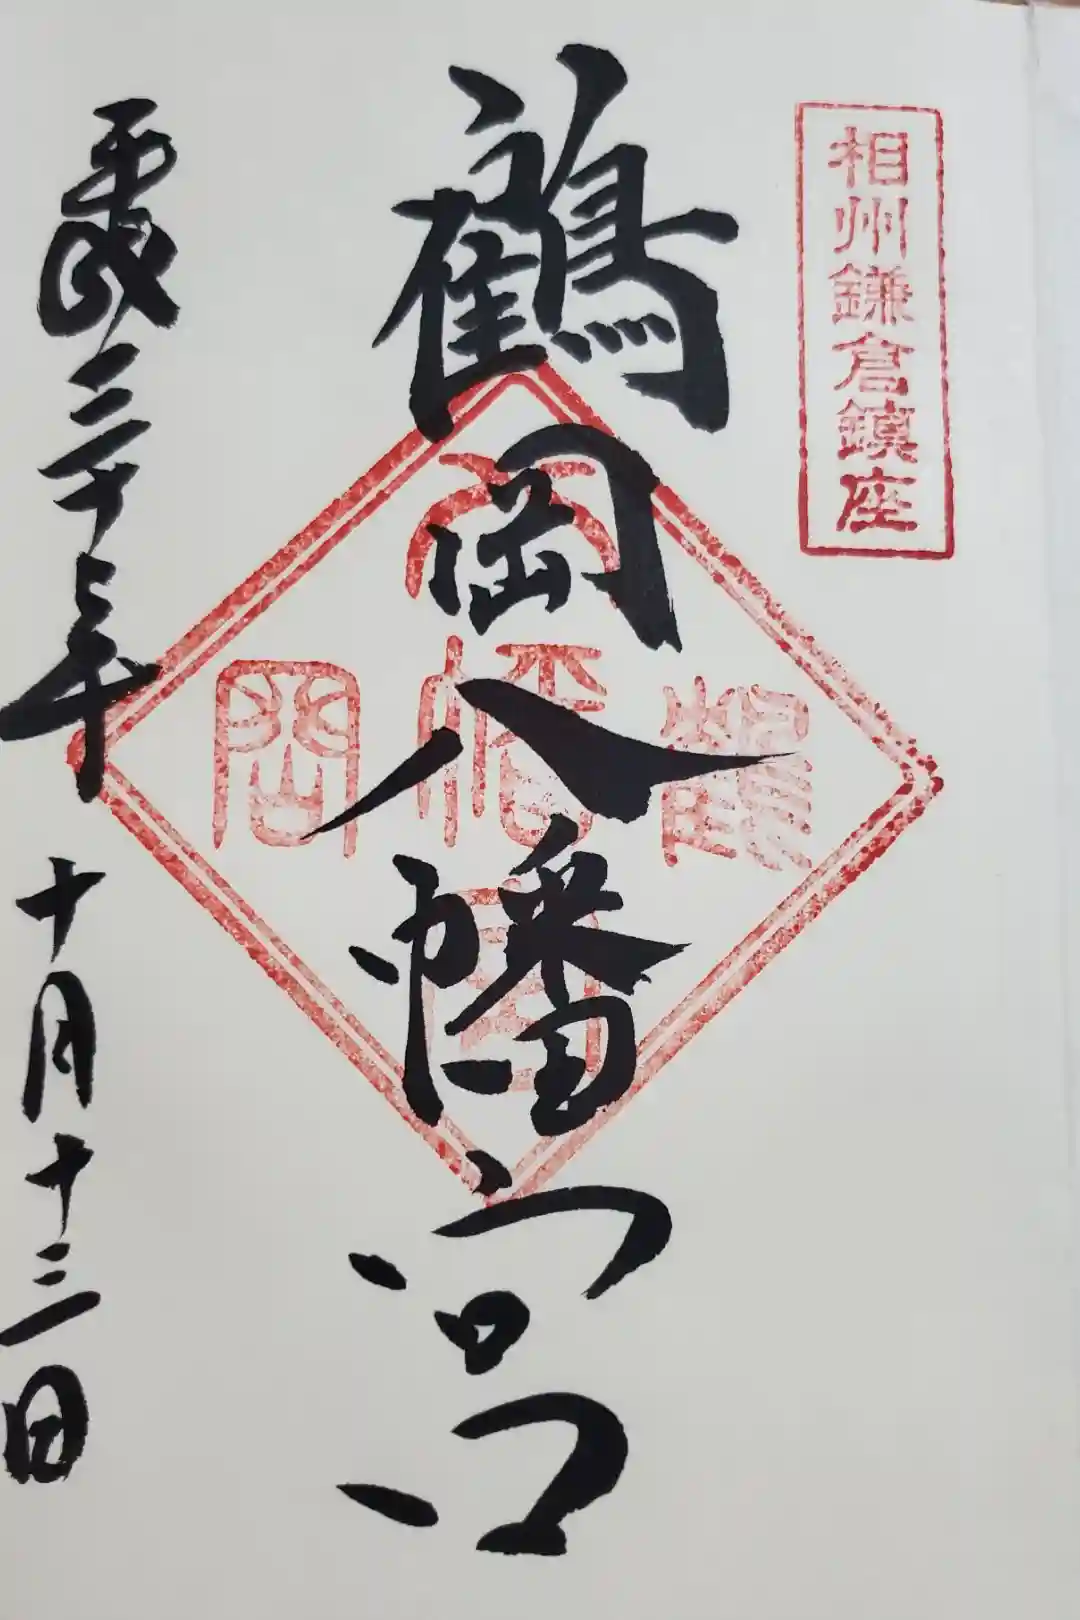 相州鎌倉鎮座
鶴岡八幡宮
八幡宮
鶴
岡
平成
年
十月十三日